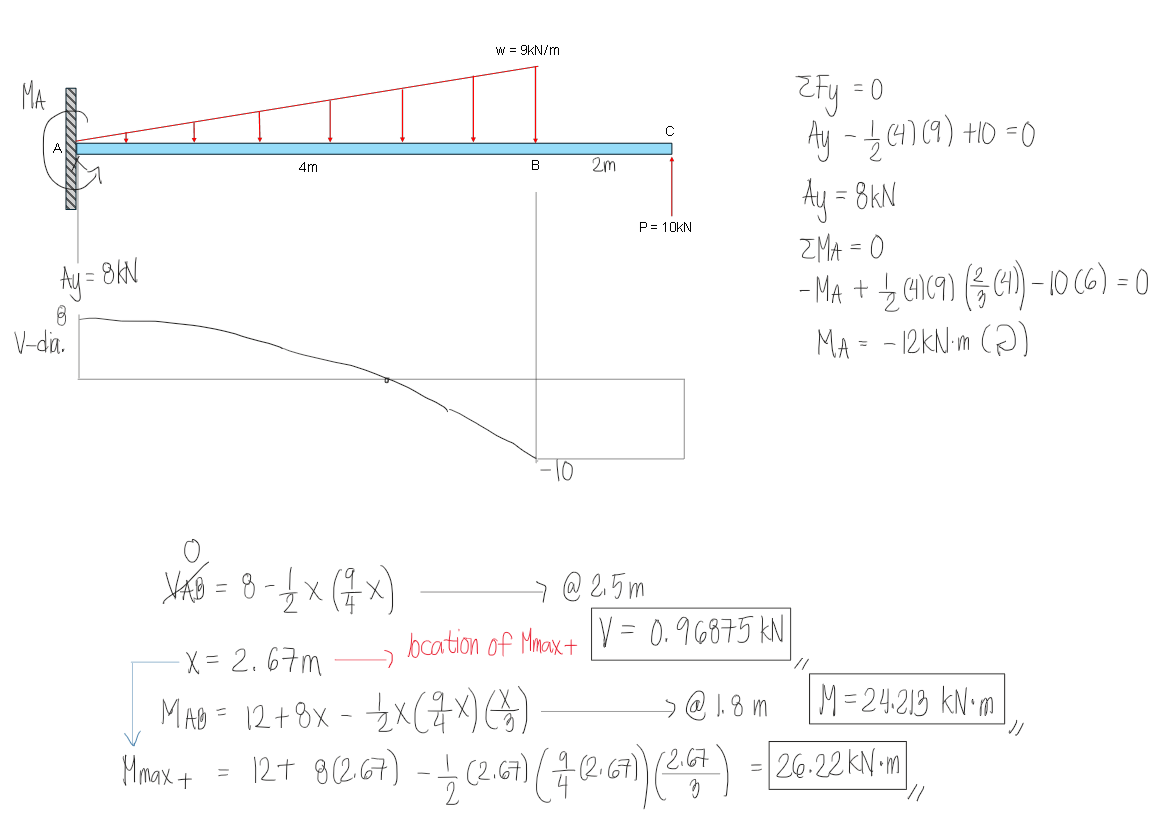 w = 9kN/m
MA
A
4m
B
2m
C
P = 10kN
Ay = 8kN
8
V-dia.
-10
ΣFy = 0
Ay - 1/2 (4)(9) +10 = 0
Ay = 8kN
ΣMA = 0
-MA + 1/2 (4)(9) (2/3 (4)) - 10(6) = 0
MA = -12kN·m (↻)
0
VAB = 8 - 1/2 x (9/4 x) → @ 2.5m
V = 0.96875 kN
x = 2.67m → location of Mmax+
MAB = 12+8x - 1/2 x (9/4 x)(x/3) → @ 1.8 m
M = 24.213 kN·m
Mmax+ = 12 + 8(2.67) - 1/2 (2.67) (9/4 (2.67)) (2.67/3) = 26.22 kN·m